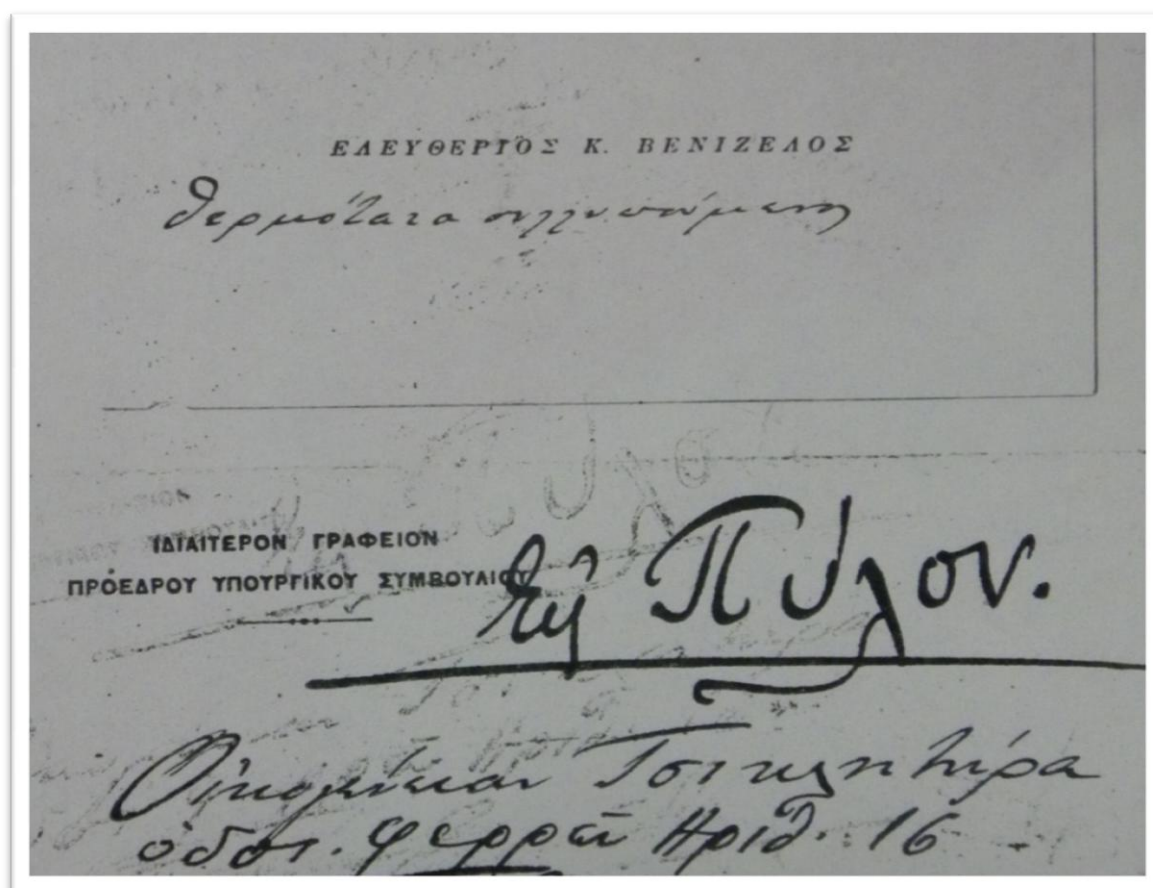 ΕΛΕΥΘΕΡΙΟΣ Κ. ΒΕΝΙΖΕΛΟΣ
θερμότατα συλλυπούμενος
ΙΔΙΑΙΤΕΡΟΝ ΓΡΑΦΕΙΟΝ
ΠΡΟΕΔΡΟΥ ΥΠΟΥΡΓΙΚΟΥ ΣΥΜΒΟΥΛΙΟΥ
Εἰς Πύλον.
Οἰκογένειαν Τσικλητήρα
ὁδός. Φερρῶν Ἀριθ. 16